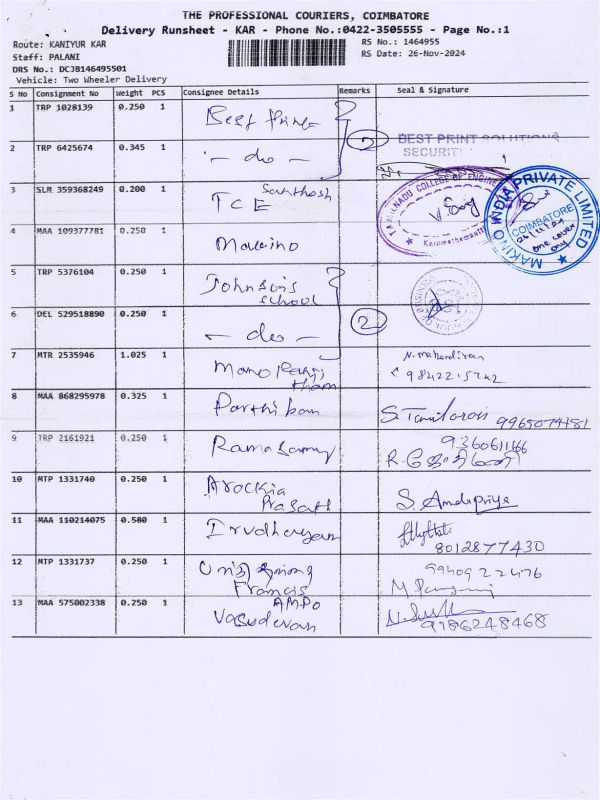 THE PROFESSIONAL COURIERS, COIMBATORE
Delivery Runsheet - KAR - Phone No.:0422-3505555 - Page No.:1
Route: KANIYUR KAR
RS No.: 1464955
Staff: PALANI
RS Date: 26-Nov-2024
DRS No.: DCJB146495501
Vehicle: Two Wheeler Delivery
S No Consignment No Weight PCS Consignee Details Remarks Seal & Signature
1 TRP 1028139 0.250 1 Best Print
2 TRP 6425674 0.345 1 - do - 2 BEST PRINT SOLUTIONS
SECURITY
3 SLR 359368249 0.200 1 Santhosh
TCE
TAMILNADU COLLEGE OF ENGINE
Karumathampatti
4 MAA 109377781 0.250 1 Makino
MAKINO INDIA PRIVATE LIMITED
COIMBATORE
26/11/24
one cover
only
5 TRP 5376104 0.250 1 Johnson's
school
6 DEL 529518890 0.250 1 - do - 2
7 MTR 2535946 1.025 1 Mano Ranji
tham
N. Mahendiran
9842215742
8 MAA 868295978 0.325 1 Parthiban S. Tamilarasi 9965074181
9 TRP 2161921 0.250 1 Ramasamy 9360611166
10 MTP 1331740 0.250 1 Arockia
Prasath S. Amalipriya
11 MAA 110214075 0.580 1 Irudhayam
8012877430
12 MTP 1331737 0.250 1
Francis
9490922476
13 MAA 575002338 0.250 1 AMPO
Vasudevan
9786248468